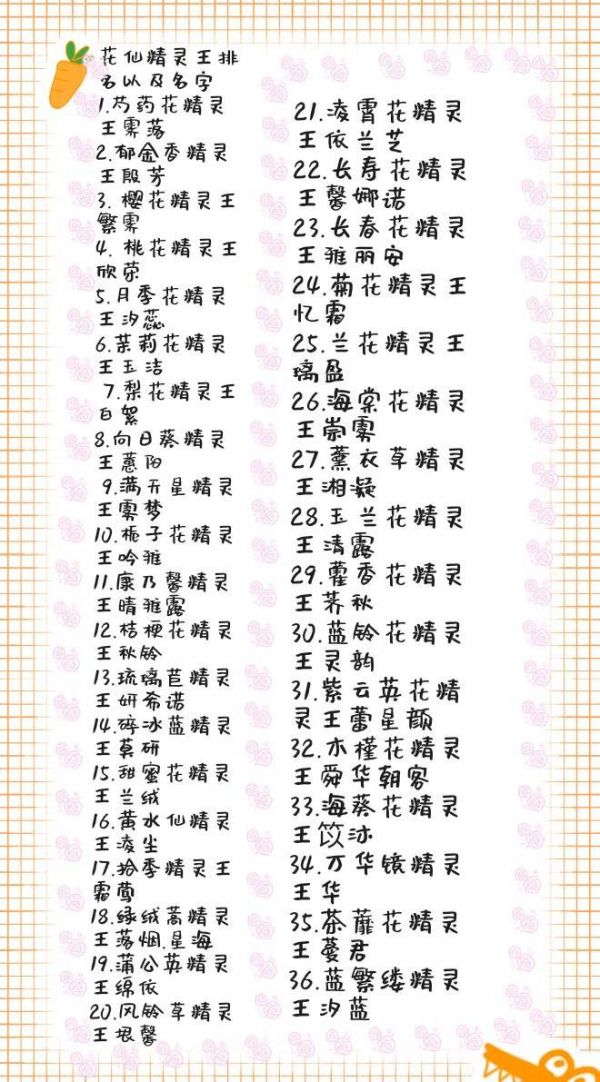 花仙精灵王排
名以及名字
1.芍药花精灵
王霁落
2.郁金香精灵
王殷芳
3.樱花精灵王
繁雾
4.桃花精灵王
欣荣
5.月季花精灵
王汐蕊
6.茉莉花精灵
王玉洁
7.梨花精灵王
白絮
8.向日葵精灵
王蕙阳
9.满天星精灵
王雾梦
10.栀子花精灵
王吟雅
11.康乃馨精灵
王晴雅露
12.桔梗花精灵
王秋铃
13.琉璃苣精灵
王妍希诺
14.碎冰蓝精灵
王莫研
15.甜蜜花精灵
王兰绒
16.黄水仙精灵
王凌尘
17.拾季精灵王
霜莺
18.绿绒蒿精灵
王落烟.星海
19.蒲公英精灵
王绵依
20.风铃草精灵
王垠馨
21.凌霄花精灵
王依兰芝
22.长寿花精灵
王馨娜诺
23.长春花精灵
王雅丽安
24.菊花精灵王
忆霜
25.兰花精灵王
璃盈
26.海棠花精灵
王崇雾
27.薰衣草精灵
王湘凝
28.玉兰花精灵
王清露
29.藿香花精灵
王荞秋
30.蓝铃花精灵
王灵韵
31.紫云英花精
灵王蕾星颜
32.木槿花精灵
王舜华朝客
33.海葵花精灵
王饮沐
34.万华镜精灵
王华
35.荼蘼花精灵
王蔓君
36.蓝繁缕精灵
王汐蓝